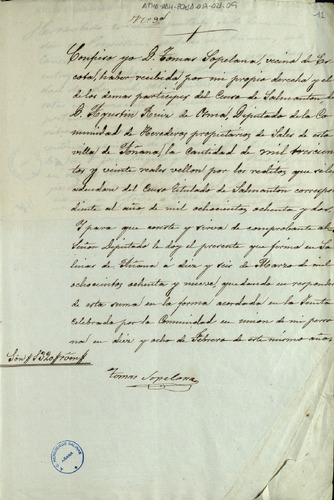 Confieso yo D. Tomas Sopelana, vecino de
cota, haber recibido por mi propio derecho y el
de los demas participes del Censo de Salmanton de
D. Agustin Ruiz de Oma, Diputado de la Co-
munidad de Herederos propietarios de Sales de esta
villa de Añana, la cantidad de mil trescien-
tos y veinte reales vellon por los reditos que se le
adeudan del Censo titulado de Salmanton correspon-
diente al año de mil ochocientos ochenta y dos.
Y para que conste y sirva de comprobante al
Señor Diputado le doy el presente que firmo en Sa-
linas de Añana a diez y seis de Marzo de mil
ochocientos ochenta y nueve, quedando en responder
de esta suma en la forma acordada en la Junta
celebrada por la Comunidad en union de mi perso-
na en diez y ocho de Febrero de este mismo año.
Son 1320
Tomas Sopelana